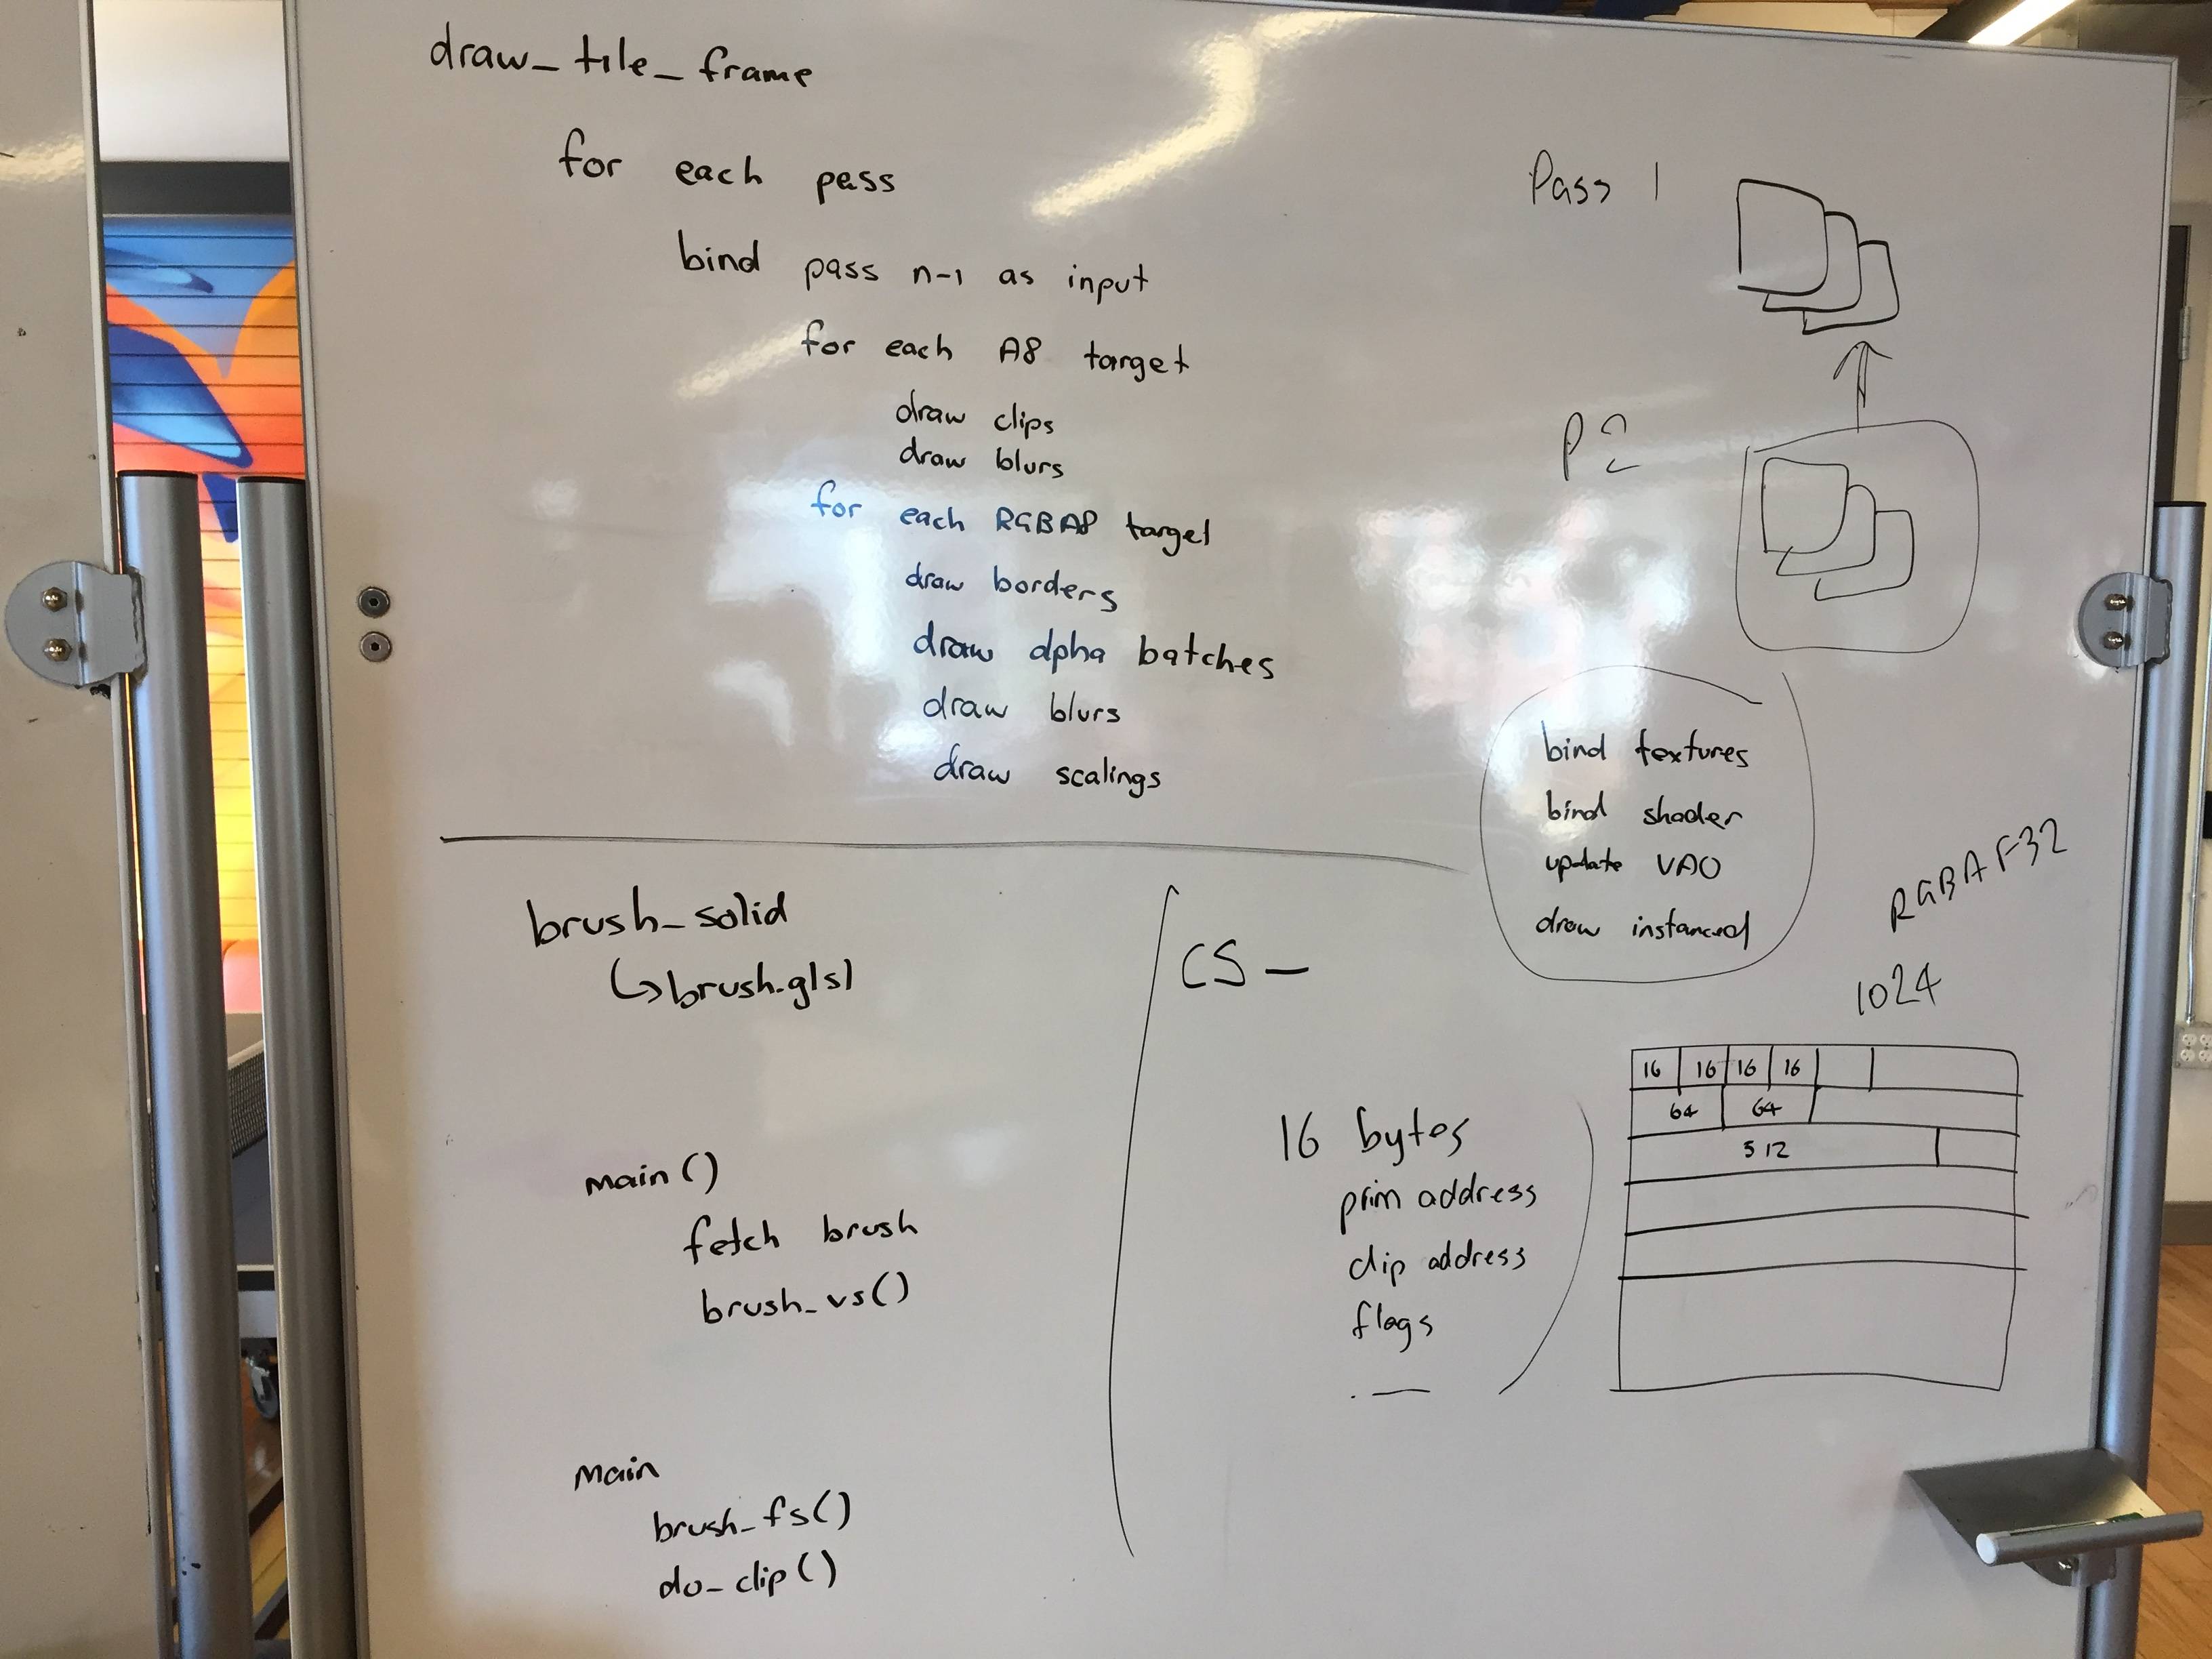 draw_tile_frame
for each pass
bind pass n-1 as input
for each A8 target
draw clips
draw blurs
for each RGBA8 target
draw borders
draw alpha batches
draw blurs
draw scalings
Pass 1
P2
bind textures
bind shader
update VAO
draw instanced
brush_solid
↳brush.glsl
main()
fetch brush
brush_vs()
main
brush_fs()
do_clip()
CS_
16 bytes
prim address
clip address
flags
RGBAF32
1024
16 16 16 16
64 64
512